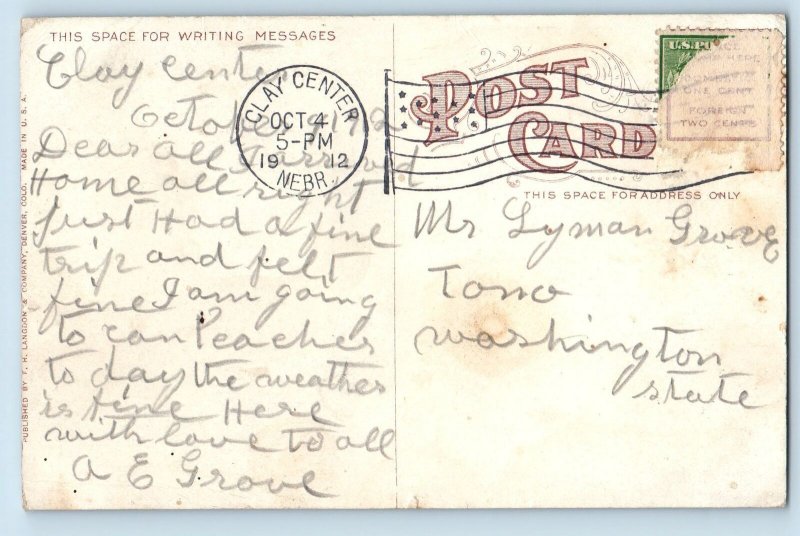 THIS SPACE FOR WRITING MESSAGES
Clay Center
October
Dear all I arrived
Home all right
just Had a fine
trip and felt
fine I am going
to can Peaches
to day the weather
is fine Here
with love to all
A E Grove
PUBLISHED BY F. H. LANGDON & COMPANY, DENVER, COLO. MADE IN U. S. A.
CLAY CENTER
OCT 4
5-PM
1912
NEBR.
POST
CARD
THIS SPACE FOR ADDRESS ONLY
U.S.PO
ONE CENT
FOREIGN
TWO CENTS
Mr Lyman Grove
Tono
washington
state